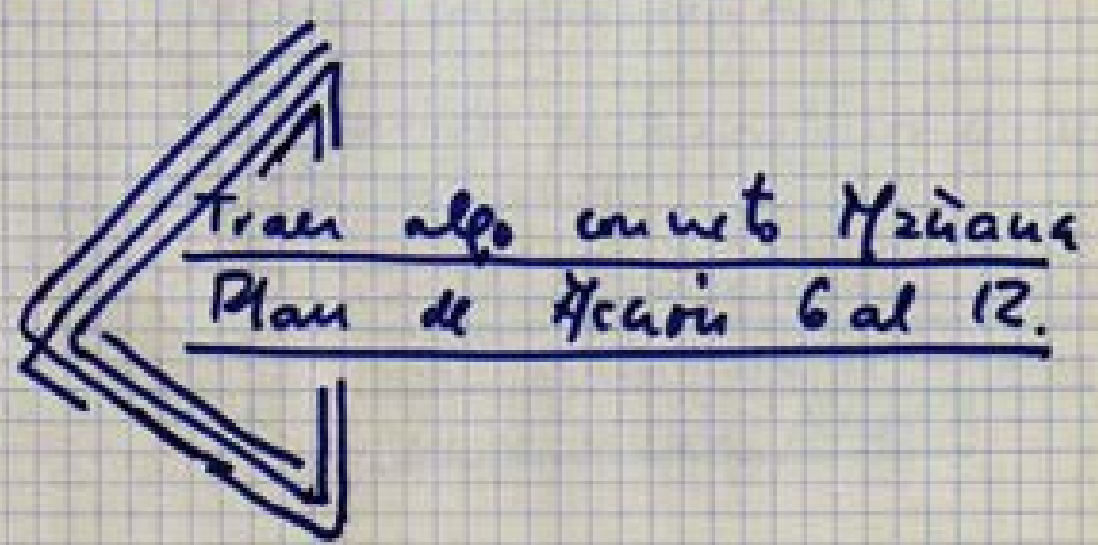 Traer algo concreto Mañana
Plan de Acción 6 al 12.